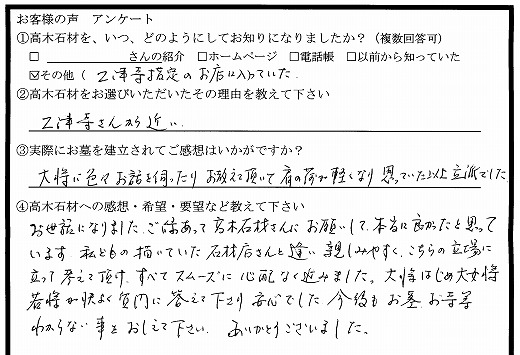 お客様の声 アンケート
①高木石材を、いつ、どのようにしてお知りになりましたか？（複数回答可）
□ さんの紹介 □ホームページ □電話帳 □以前から知っていた
☑その他（ 乙津寺指定のお店に入っていた.
②高木石材をお選びいただいたその理由を教えて下さい
乙津寺さんから近い.
③実際にお墓を建立されてご感想はいかがですか？
大将に色々お話を伺ったりお教えて頂いて肩の荷が軽くなり思っていた以上立派でした
④高木石材への感想・希望・要望など教えて下さい
お世話になりました。ご縁あって高木石材さんにお願いして本当に良かったと思って
います。私どもの描いていた石材店さんと違い親しみやすく、こちらの立場に
立って考えて頂き、すべてスムーズに心配なく進みました。大将はじめ大女将
若将が快よく質問に答えて下さり安心でした 今後もお墓、お寺等
わからない事をおしえて下さい。ありがとうございました。